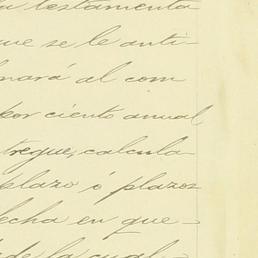 a testamenta
que se le anti-
onará al com
por ciento anual
tregue, calcula-
plazo ó plazos
fecha en que-
de la cual